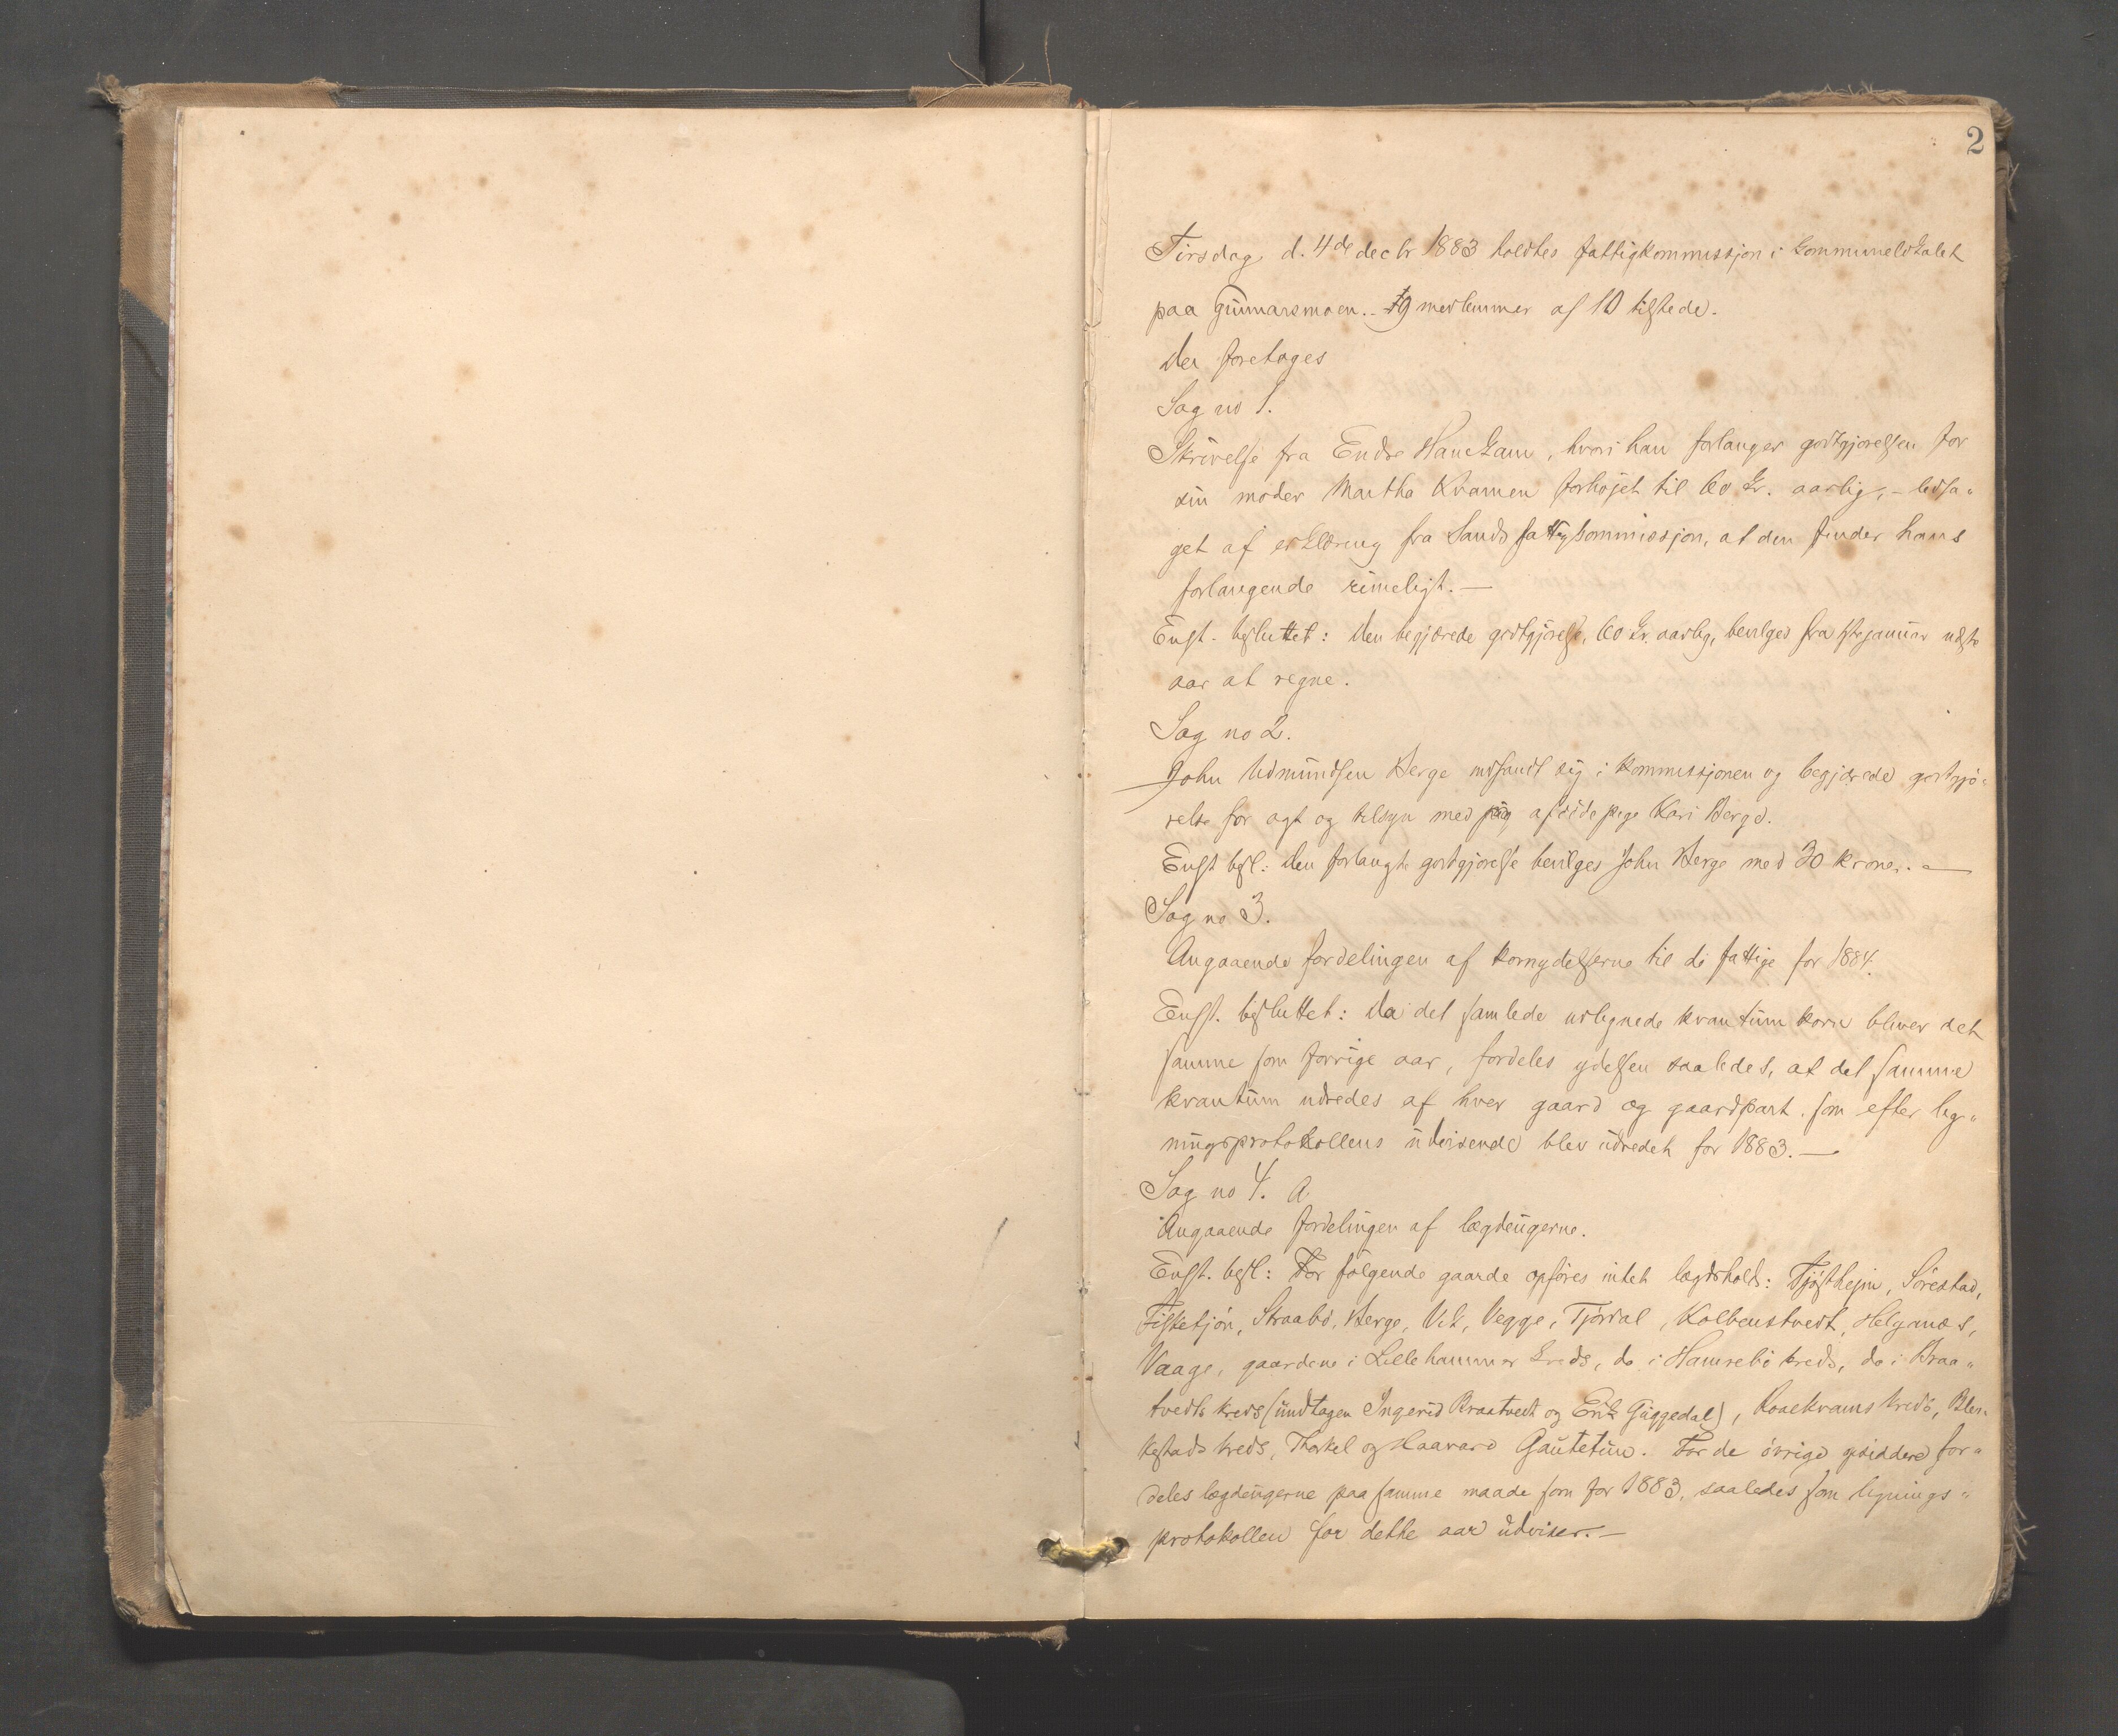 2
Tirsdag d. 4de decbr 1883 holdtes fattigkommissjon i kommunelokalet
paa Gunnarsmoen. 9 medlemmer af 10 tilstede.
Der foretoges
Sag no 1.
Skrivelse fra Endre Hauekam, hvori han forlanger godtgjørelsen for
sin moder Martha Kvamen forhøjet til 60 kr. aarlig, – ledsa-
get af erklæring fra Sands fattigkommissjon, at den finder hans
forlangende rimeligt. —
Enst. besluttet: Den begjærede godtgjørelse, 60 kr. aarlig, bevilges fra 1ste januar næste
aar at regne.
Sag no 2.
John Udmundsen Berge indfandt sig i kommissjonen og begjærede godtgjø-
relse for agt og tilsyn med afside pige Kari Berge.
Enst besl: Den forlangte godtgjørelse bevilges John Berge med 30 kroner. —
Sag no 3.
Angaaende fordelingen af kornydelserne til de fattige for 1884.
Enst. besluttet: Da det samlede udlignede kvantum korn bliver det
samme som forrige aar, fordeles ydelsen saaledes, at det samme
kvantum udredes af hver gaard og gaardpart som efter lig-
ningsprotokollens udvisende blev udredet for 1883. —
Sag no 4. A
Angaaende fordelingen af lægdeugerne.
Enst. besl: For følgende gaarde opføres intet lægdshold: Tjøstheim, Sørestad,
Fisketjøn, Straabø, Berge, Vik, Vegge, Tjørdal, Kolbenstvedt, Helganæs,
Vaage, gaardene i Lillehammer kreds, do i Hamrebø kreds, do i Braa-
tvedts kreds (undtagen Ingerid Braatvedt og Erik Guggedal), Roaekvams kreds, Bler-
kestads kreds, Thorkel og Haavard Gautetun. For de øvrige opsiddere for-
deles lægdeugerne paa samme maade som for 1883, saaledes som lignings-
protokollen for dette aar udviser. —